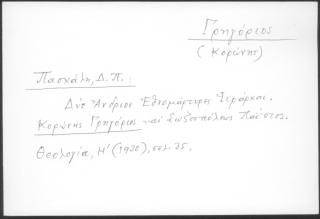 Γρηγόριος
(Κορώνης)
Πασχάλη, Δ. Π.:
Δύο Άνδριοι Εθνομάρτυρες Ιεράρχαι.
Κορώνης Γρηγόριος και Σωζοπόλεως Παΐσιος.
Θεολογία, Η' (1930), σελ. 35.